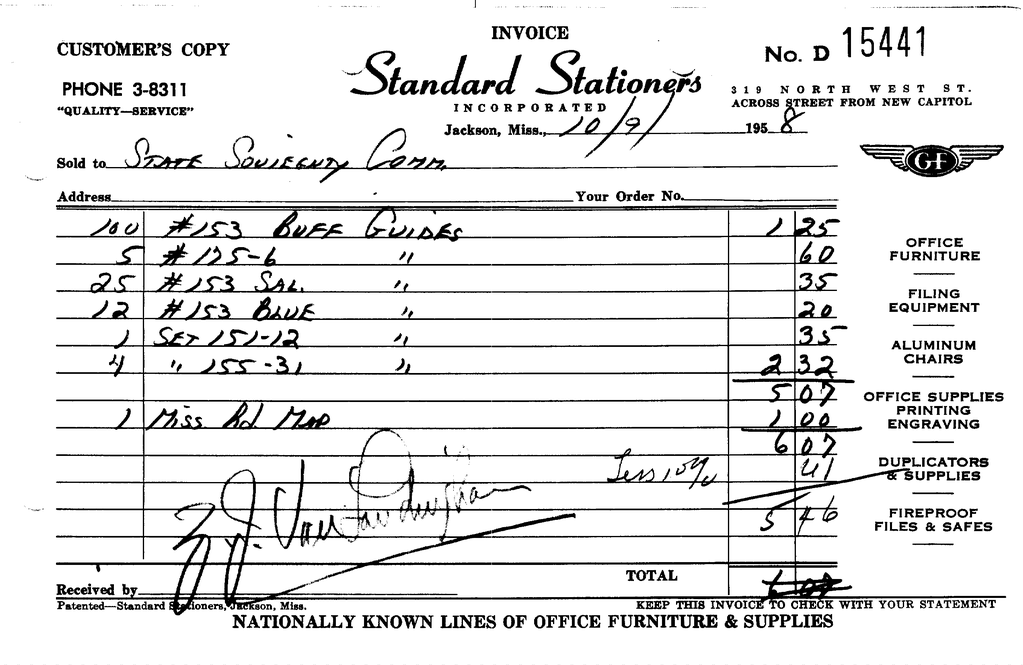 INVOICE
CUSTOMER'S COPY
No. D 15441
Standard Stationers
PHONE 3-8311
319 NORTH WEST ST.
INCORPORATED
"QUALITY—SERVICE"
ACROSS STREET FROM NEW CAPITOL
Jackson, Miss., 10/9/ 1958
Sold to STATE Soviegnty Comm.
GF
Address Your Order No.
100 #153 BUFF GUIDES 1 25
5 #125-6 " 60
25 #153 SAL. " 35
12 #153 BLUE " 20
1 SET 151-12 " 35
4 " 155-31 " 2 32
5 07
1 Miss Rd Map 1 00
6 07
Less 10% 41
5 46
OFFICE
FURNITURE
FILING
EQUIPMENT
ALUMINUM
CHAIRS
OFFICE SUPPLIES
PRINTING
ENGRAVING
DUPLICATORS
& SUPPLIES
FIREPROOF
FILES & SAFES
TOTAL
Received by
Patented—Standard Stationers, Jackson, Miss.
KEEP THIS INVOICE TO CHECK WITH YOUR STATEMENT
NATIONALLY KNOWN LINES OF OFFICE FURNITURE & SUPPLIES